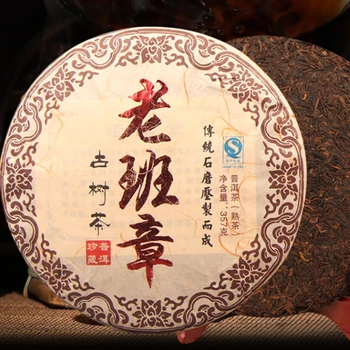 老班章
古树茶
普洱
珍藏
傳統石磨壓製而成
普洱茶（熟茶）
净含量：357克